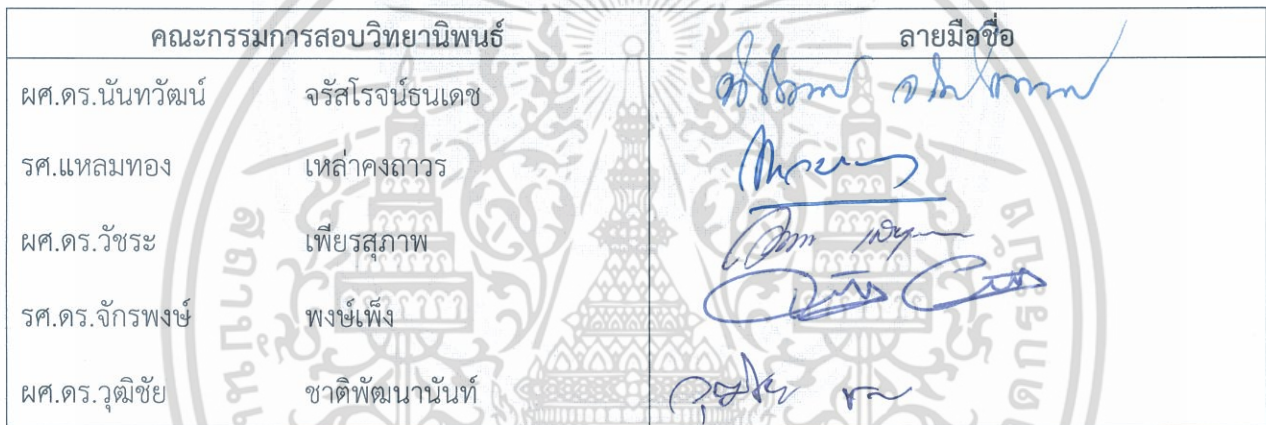 คณะกรรมการสอบวิทยานิพนธ์ ลายมือชื่อ
ผศ.ดร.นันทวัฒน์ จรัสโรจน์ธนเดช
รศ.แหลมทอง เหล่าคงถาวร
ผศ.ดร.วัชระ เพียรสุภาพ
รศ.ดร.จักรพงษ์ พงษ์เพ็ง
ผศ.ดร.วุฒิชัย ชาติพัฒนานันท์